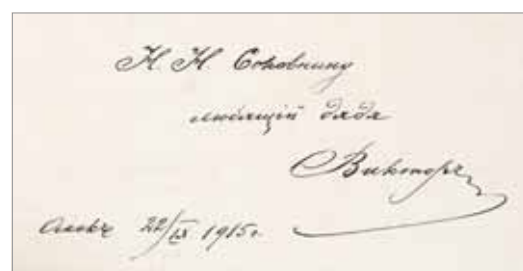 Н. Н. Соковнину
любящій дядя
Викторъ
22/IX 1915 г.